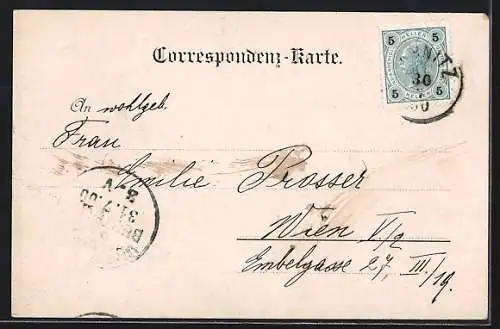 Correspondenz-Karte.
5 HELLER 5
5 5
NITZ
30
00
An wohlgeb.
Frau
Emilie Prosser
Wien V/2
Embelgasse 27, III/19.
31.7.00
8.V